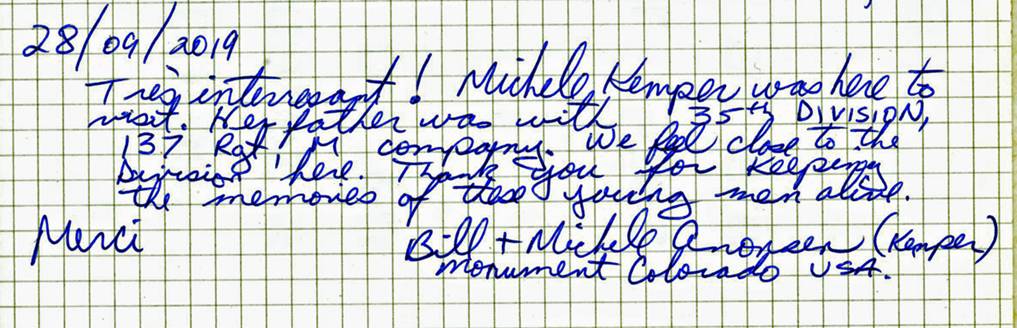 28/09/2019
Très interresant! Michele Kemper was here to
visit. Her father was with 35th DIVISION,
137 Rgt, M company. We feel close to the
Division here. Thank you for keeping
the memories of these young men alive.
Merci Bill + Michele (Kemper)
Monument Colorado USA.